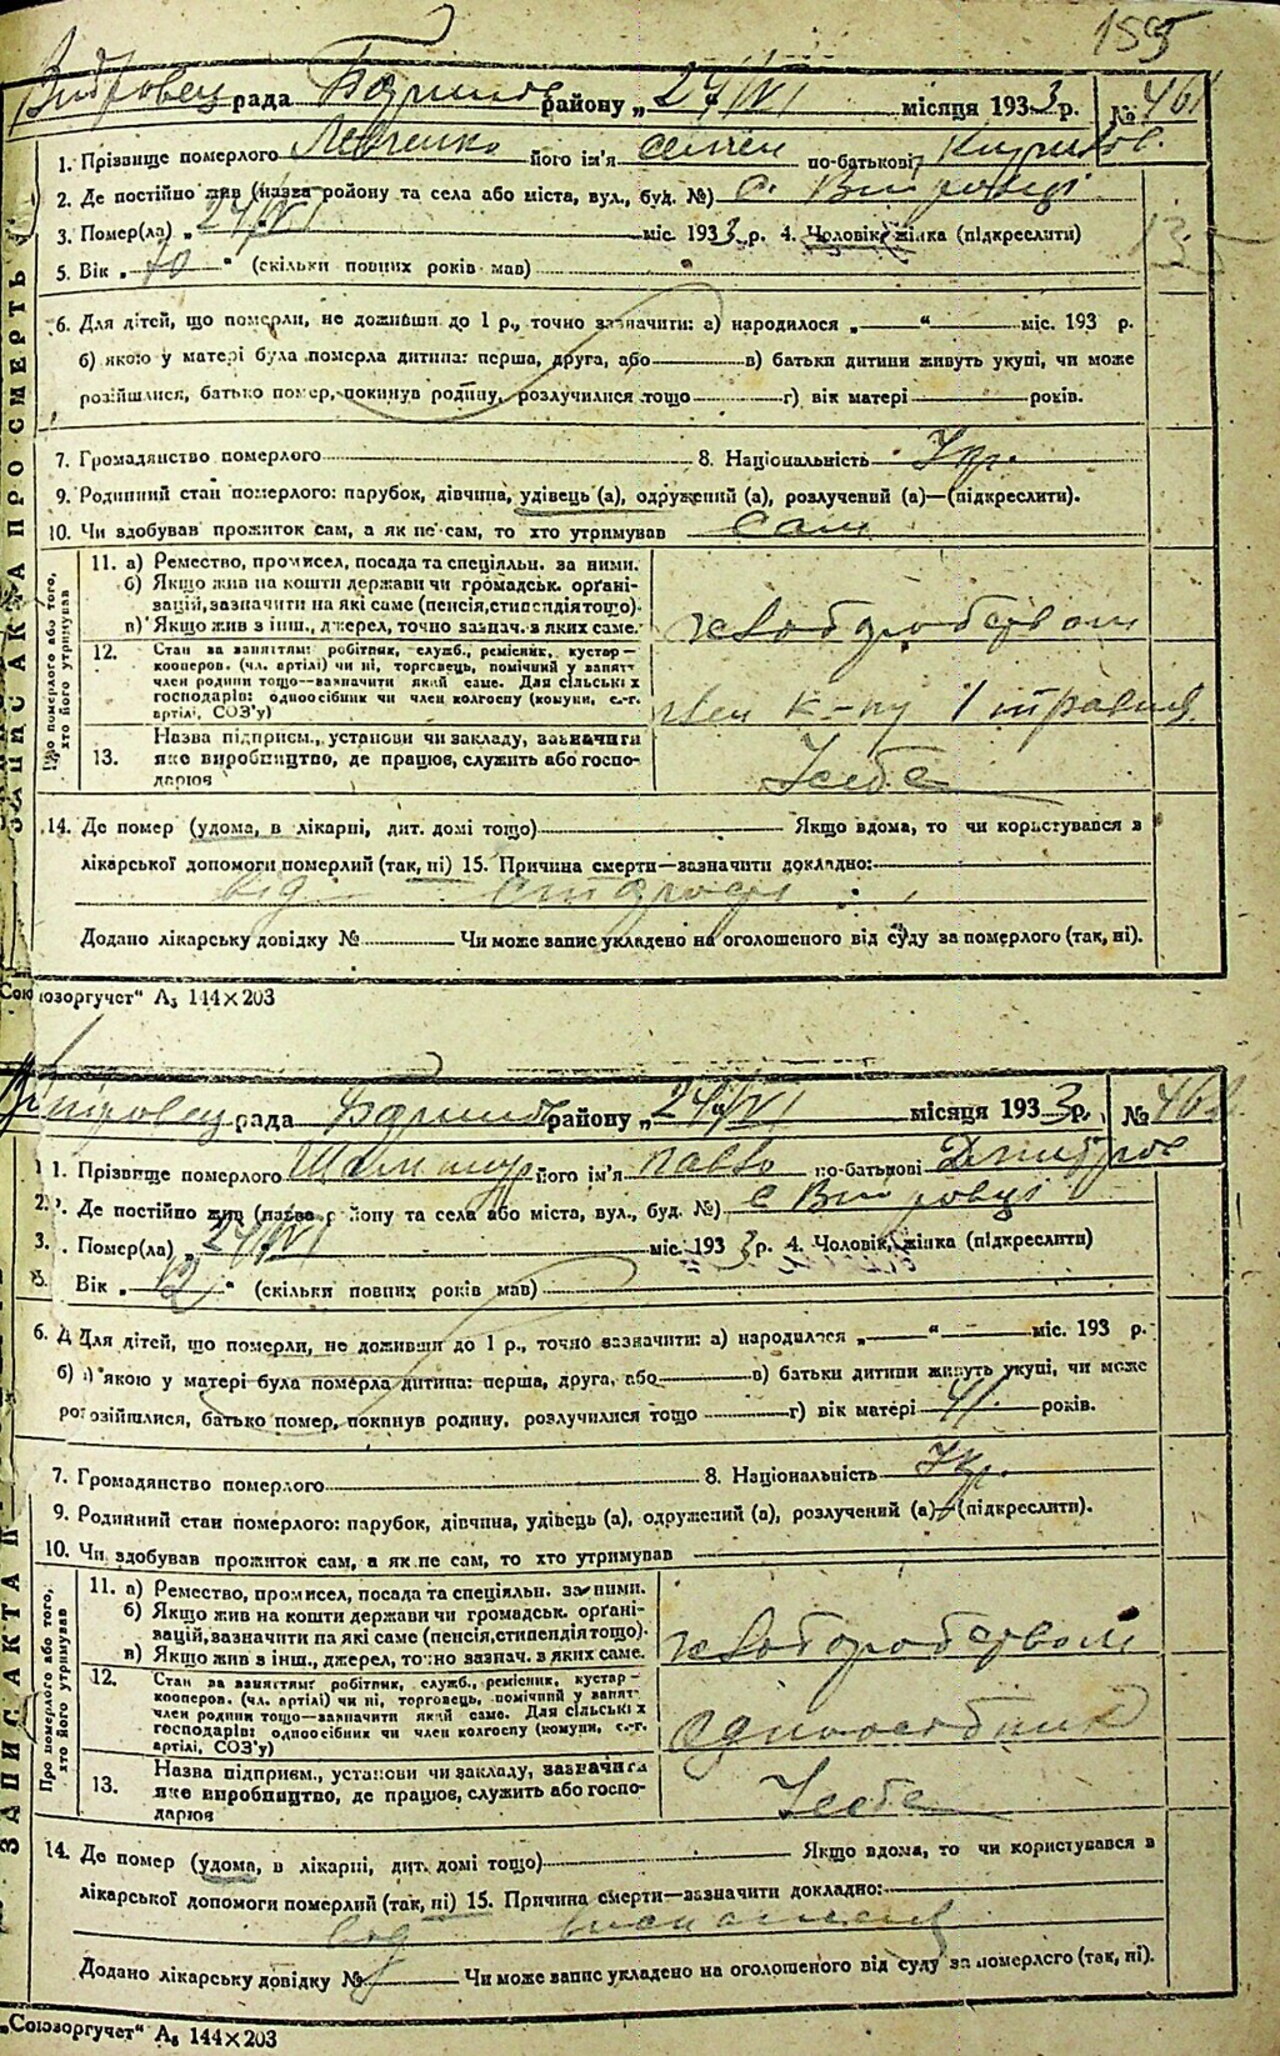 155
рада району „ 24/VI місяця 1933 р. № 461
1. Прізвище померлого Левченко його ім'я Семен по-батькові Кирилов.
2. Де постійно жив (назва району та села або міста, вул., буд. №) с.
3. Помер(ла) „ 24/VI міс. 1933 р. 4. Чоловік, жінка (підкреслити)
135
5. Вік „ 70 " (скільки повних років мав)
6. Для дітей, що померли, не доживши до 1 р., точно зазначити: а) народилося „ " міс. 193 р.
б) якою у матері була померла дитина: перша, друга, або в) батьки дитини живуть укупі, чи може
розійшлися, батько помер, покинув родину, розлучилися тощо г) вік матері років.
7. Громадянство померлого 8. Національність Укр.
9. Родинний стан померлого: парубок, дівчина, удівець (а), одружений (а), розлучений (а)—(підкреслити).
10. Чи здобував прожиток сам, а як не сам, то хто утримував сам
ЗАПИС АКТА ПРО СМЕРТЬ
Про померлого або того, хто його утримував
11. а) Ремество, промисел, посада та спеціяльн. за ними.
б) Якщо жив на кошти держави чи громадськ. орґані-
зацій, зазначити на які саме (пенсія, стипендія тощо).
в) Якщо жив з інш., джерел, точно зазнач. з яких саме. хлібороbством
12. Стан за заняттям: робітник, служб., ремісник, кустар—
кооперов. (чл. артілі) чи ні, торговець, помічний у занятт
член родини тощо—зазначити який саме. Для сільських
господарів: одноосібник чи член колгоспу (комуни, с.-г.
артілі, СОЗ'у) член к-пу 1 травня
13. Назва підприєм., установи чи закладу, зазначити
яке виробництво, де працює, служить або госпо-
дарює У себе
14. Де помер (удома, в лікарні, дит. домі тощо) Якщо вдома, то чи користувався в
лікарської допомоги померлий (так, ні) 15. Причина смерти—зазначити докладно:
від
Додано лікарську довідку № Чи може запис укладено на оголошеного від суду за померлого (так, ні).
Союзоргучет" А₅ 144×203
рада району „ 24/VI місяця 1933 р. № 462
1. Прізвище померлого його ім'я Павло по-батькові Дмитров
2. Де постійно жив (назва району та села або міста, вул., буд. №) с
3. Помер(ла) „ 24/VI міс. 1933 р. 4. Чоловік, жінка (підкреслити)
5. Вік „ 12 " (скільки повних років мав)
6. Для дітей, що померли, не доживши до 1 р., точно зазначити: а) народилося „ " міс. 193 р.
б) якою у матері була померла дитина: перша, друга, або в) батьки дитини живуть укупі, чи може
розійшлися, батько помер, покинув родину, розлучилися тощо г) вік матері 41. років.
7. Громадянство померлого 8. Національність Укр.
9. Родинний стан померлого: парубок, дівчина, удівець (а), одружений (а), розлучений (а)—(підкреслити).
10. Чи здобував прожиток сам, а як не сам, то хто утримував
ЗАПИС АКТА П
Про померлого або того, хто його утримував
11. а) Ремество, промисел, посада та спеціяльн. за ними.
б) Якщо жив на кошти держави чи громадськ. орґані-
зацій, зазначити на які саме (пенсія, стипендія тощо).
в) Якщо жив з інш., джерел, точно зазнач. з яких саме. хлібороbством
12. Стан за заняттям: робітник, служб., ремісник, кустар—
кооперов. (чл. артілі) чи ні, торговець, помічний у занятт
член родини тощо—зазначити який саме. Для сільських
господарів: одноосібник чи член колгоспу (комуни, с.-г.
артілі, СОЗ'у) одноосібник
13. Назва підприєм., установи чи закладу, зазначити
яке виробництво, де працює, служить або госпо-
дарює У себе
14. Де помер (удома, в лікарні, дит. домі тощо) Якщо вдома, то чи користувався в
лікарської допомоги померлий (так, ні) 15. Причина смерти—зазначити докладно:
від виснаження
Додано лікарську довідку № Чи може запис укладено на оголошеного від суду за померлого (так, ні).
„Союзоргучет" А₅ 144×203